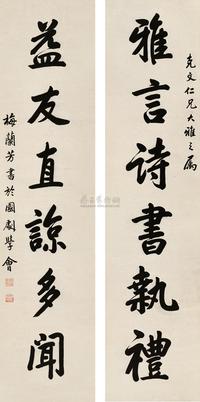 克文仁兄大雅之属
雅言诗書執禮
益友直諒多聞
梅蘭芳書於國劇學會